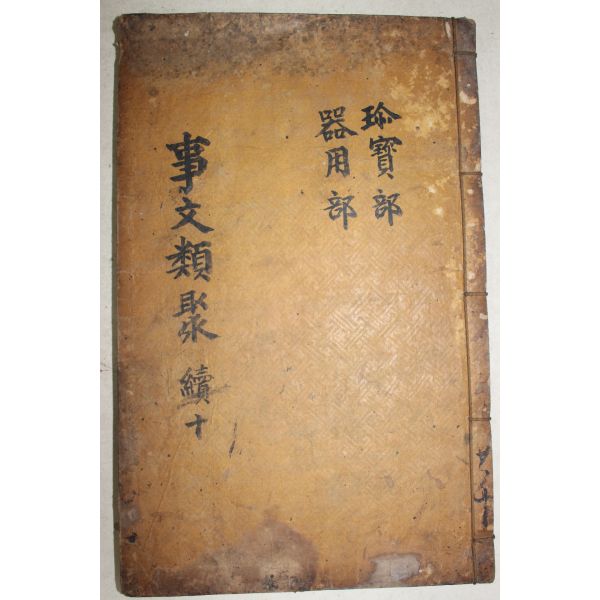 珎寶部
器用部
事文類聚 續十